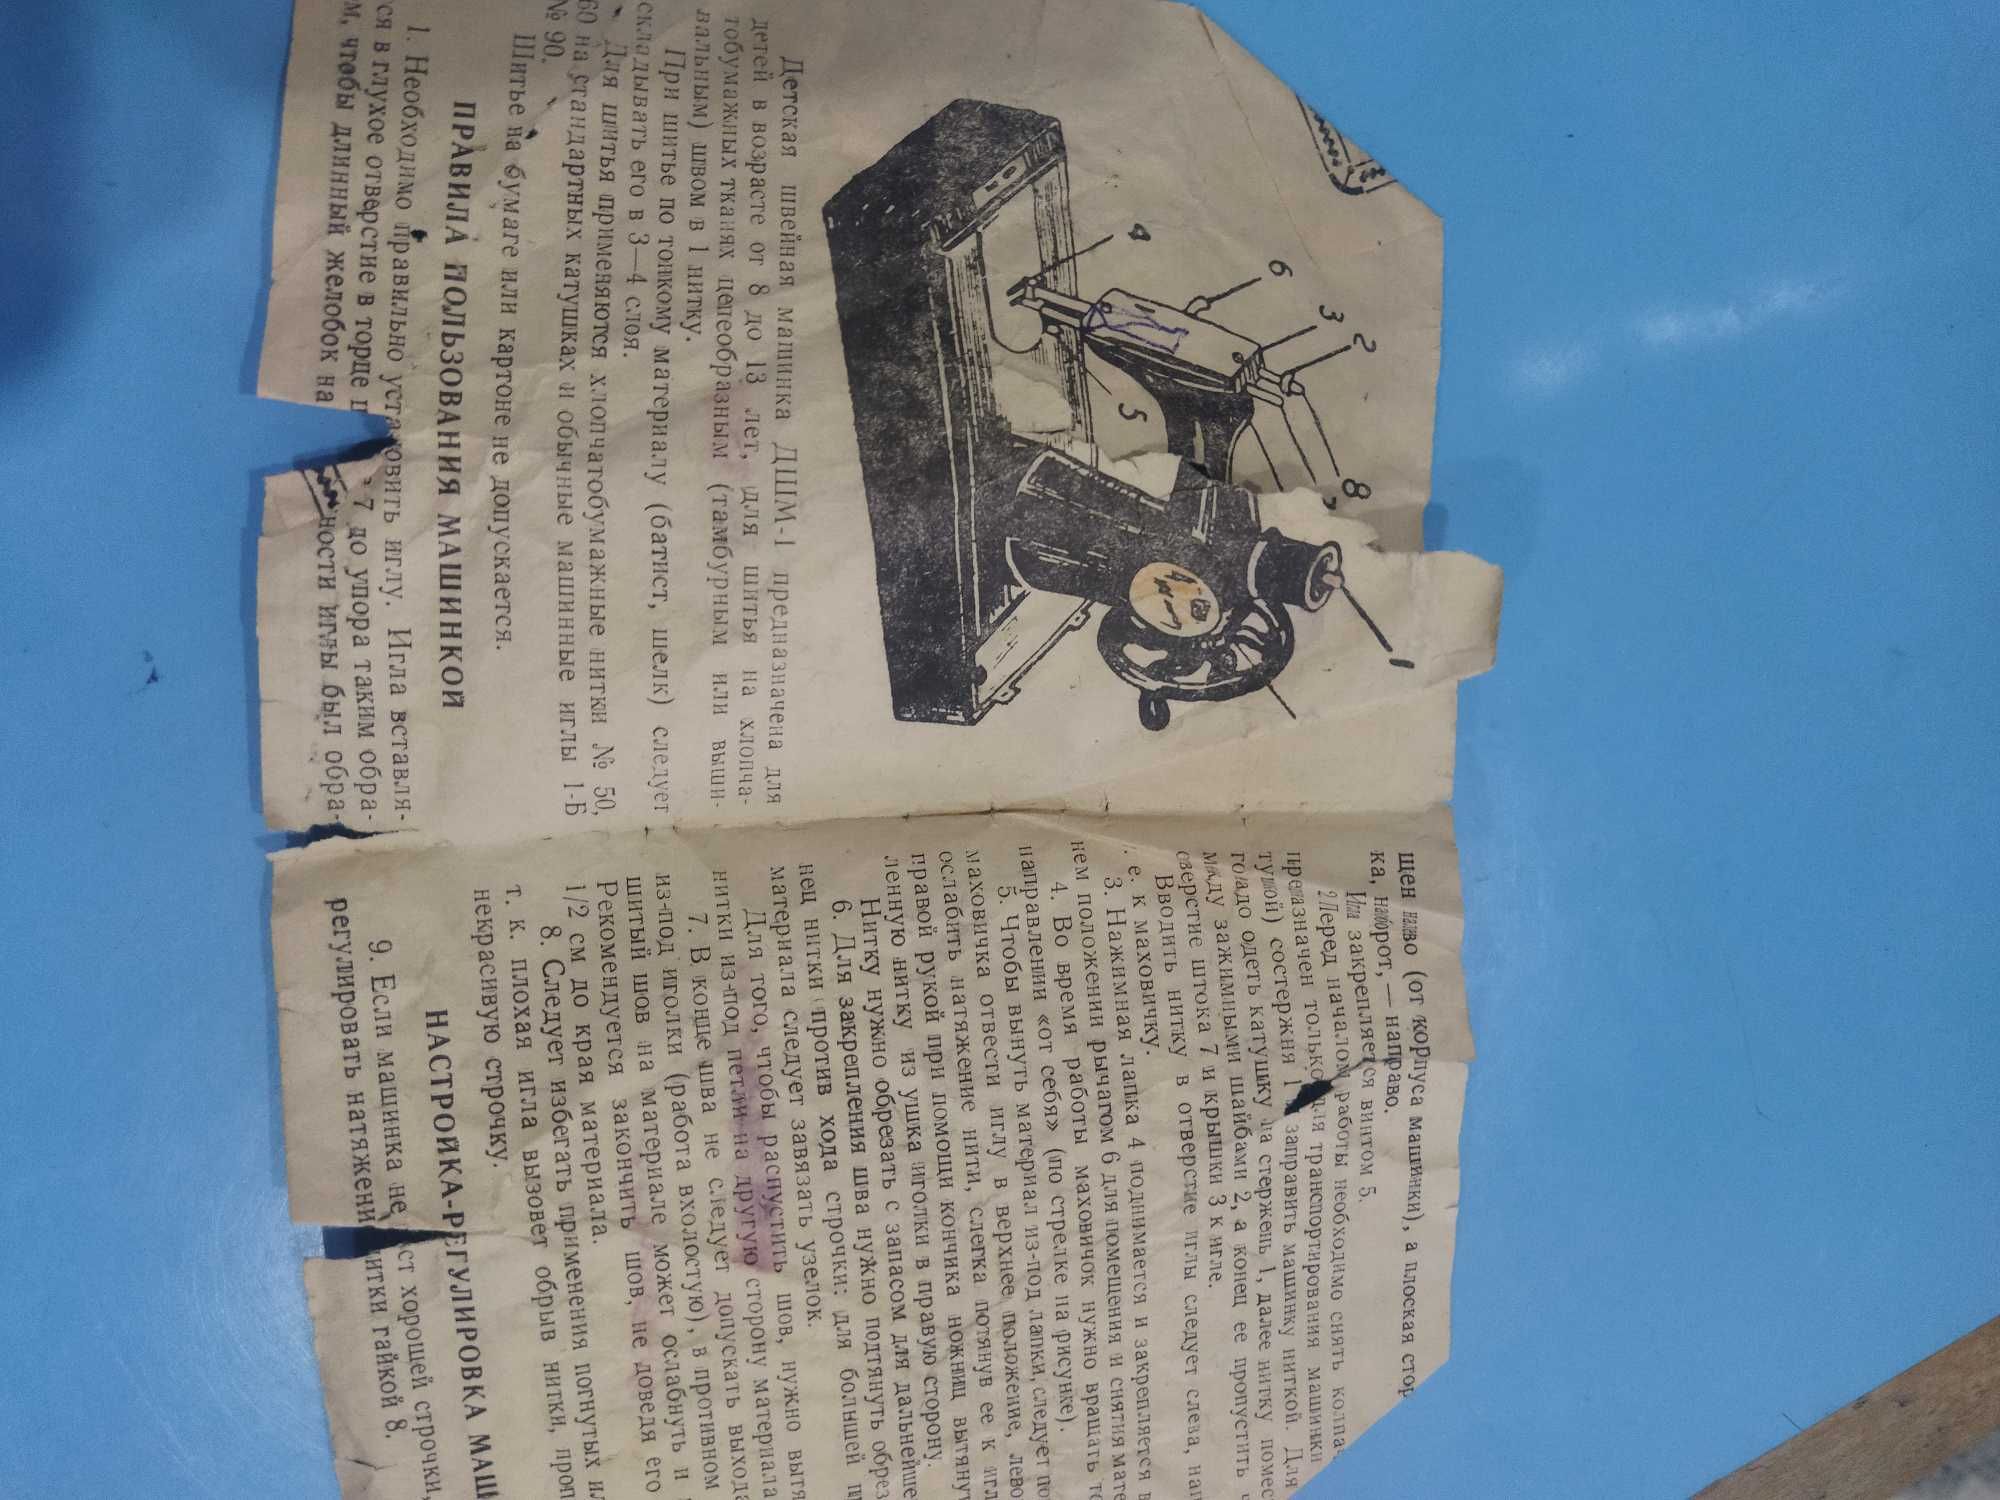 4
6
3
2
5
8
1
Детская швейная машинка ДШМ-1 предназначена для
детей в возрасте от 8 до 13 лет, для шитья на хлопча-
тобумажных тканях цепеобразным (тамбурным или выши-
вальным) швом в 1 нитку.
При шитье по тонкому материалу (батист, шелк) следует
складывать его в 3—4 слоя.
Для шитья применяются хлопчатобумажные нитки № 50,
60 на стандартных катушках и обычные машинные иглы 1-Б
№ 90.
Шитье на бумаге или картоне не допускается.
ПРАВИЛА ПОЛЬЗОВАНИЯ МАШИНКОЙ
1. Необходимо правильно установить иглу. Игла вставля-
ся в глухое отверстие в торце 7 до упора таким обра-
м, чтобы длинный желобок на ности иглы был обра-
щен (от корпуса машинки), а плоская стор
ка, наоборот, — направо.
закрепляется винтом 5.
Перед началом работы необходимо снять колпа
предназначен только для транспортирования машинки
состержня 1 заправить машинку ниткой. Для
одеть катушку на стержень 1, далее нитку помес
между зажимными шайбами 2, а конец ее пропустить ч
верстие штока 7 и крышки 3 к игле.
Вводить нитку в отверстие иглы следует слева, нап
. е. к маховичку.
3. Нажимная лапка 4 поднимается и закрепляется в
нем положении рычагом 6 для помещения и снятия мате
4. Во время работы маховичок нужно вращать то
направлении «от себя» (по стрелке на рисунке).
5. Чтобы вынуть материал из-под лапки, следует по
маховичка отвести иглу в верхнее положение, лево
ослабить натяжение нити, слегка потянув ее к игл
правой рукой при помощи кончика ножниц вытянут
ленную нитку из ушка иголки в правую сторону.
Нитку нужно обрезать с запасом для дальнейше
6. Для закрепления шва нужно подтянуть обрез
нец нитки против хода строчки: для большей п
материала следует завязать узелок.
Для того, чтобы распустить шов, нужно вытя
нитки из-под петли на другую сторону материала
7. В конце шва не следует допускать выхода
из-под иголки (работа вхолостую), в противном
шитый шов на материале может ослабнуть и
Рекомендуется закончить шов, не доведя его
1/2 см до края материала.
8. Следует избегать применения погнутых ил
т. к. плохая игла вызовет обрыв нитки, проп
некрасивую строчку.
НАСТРОЙКА-РЕГУЛИРОВКА МАШ
9. Если машинка не ст хорошей строчки,
регулировать натяжени нитки гайкой 8.